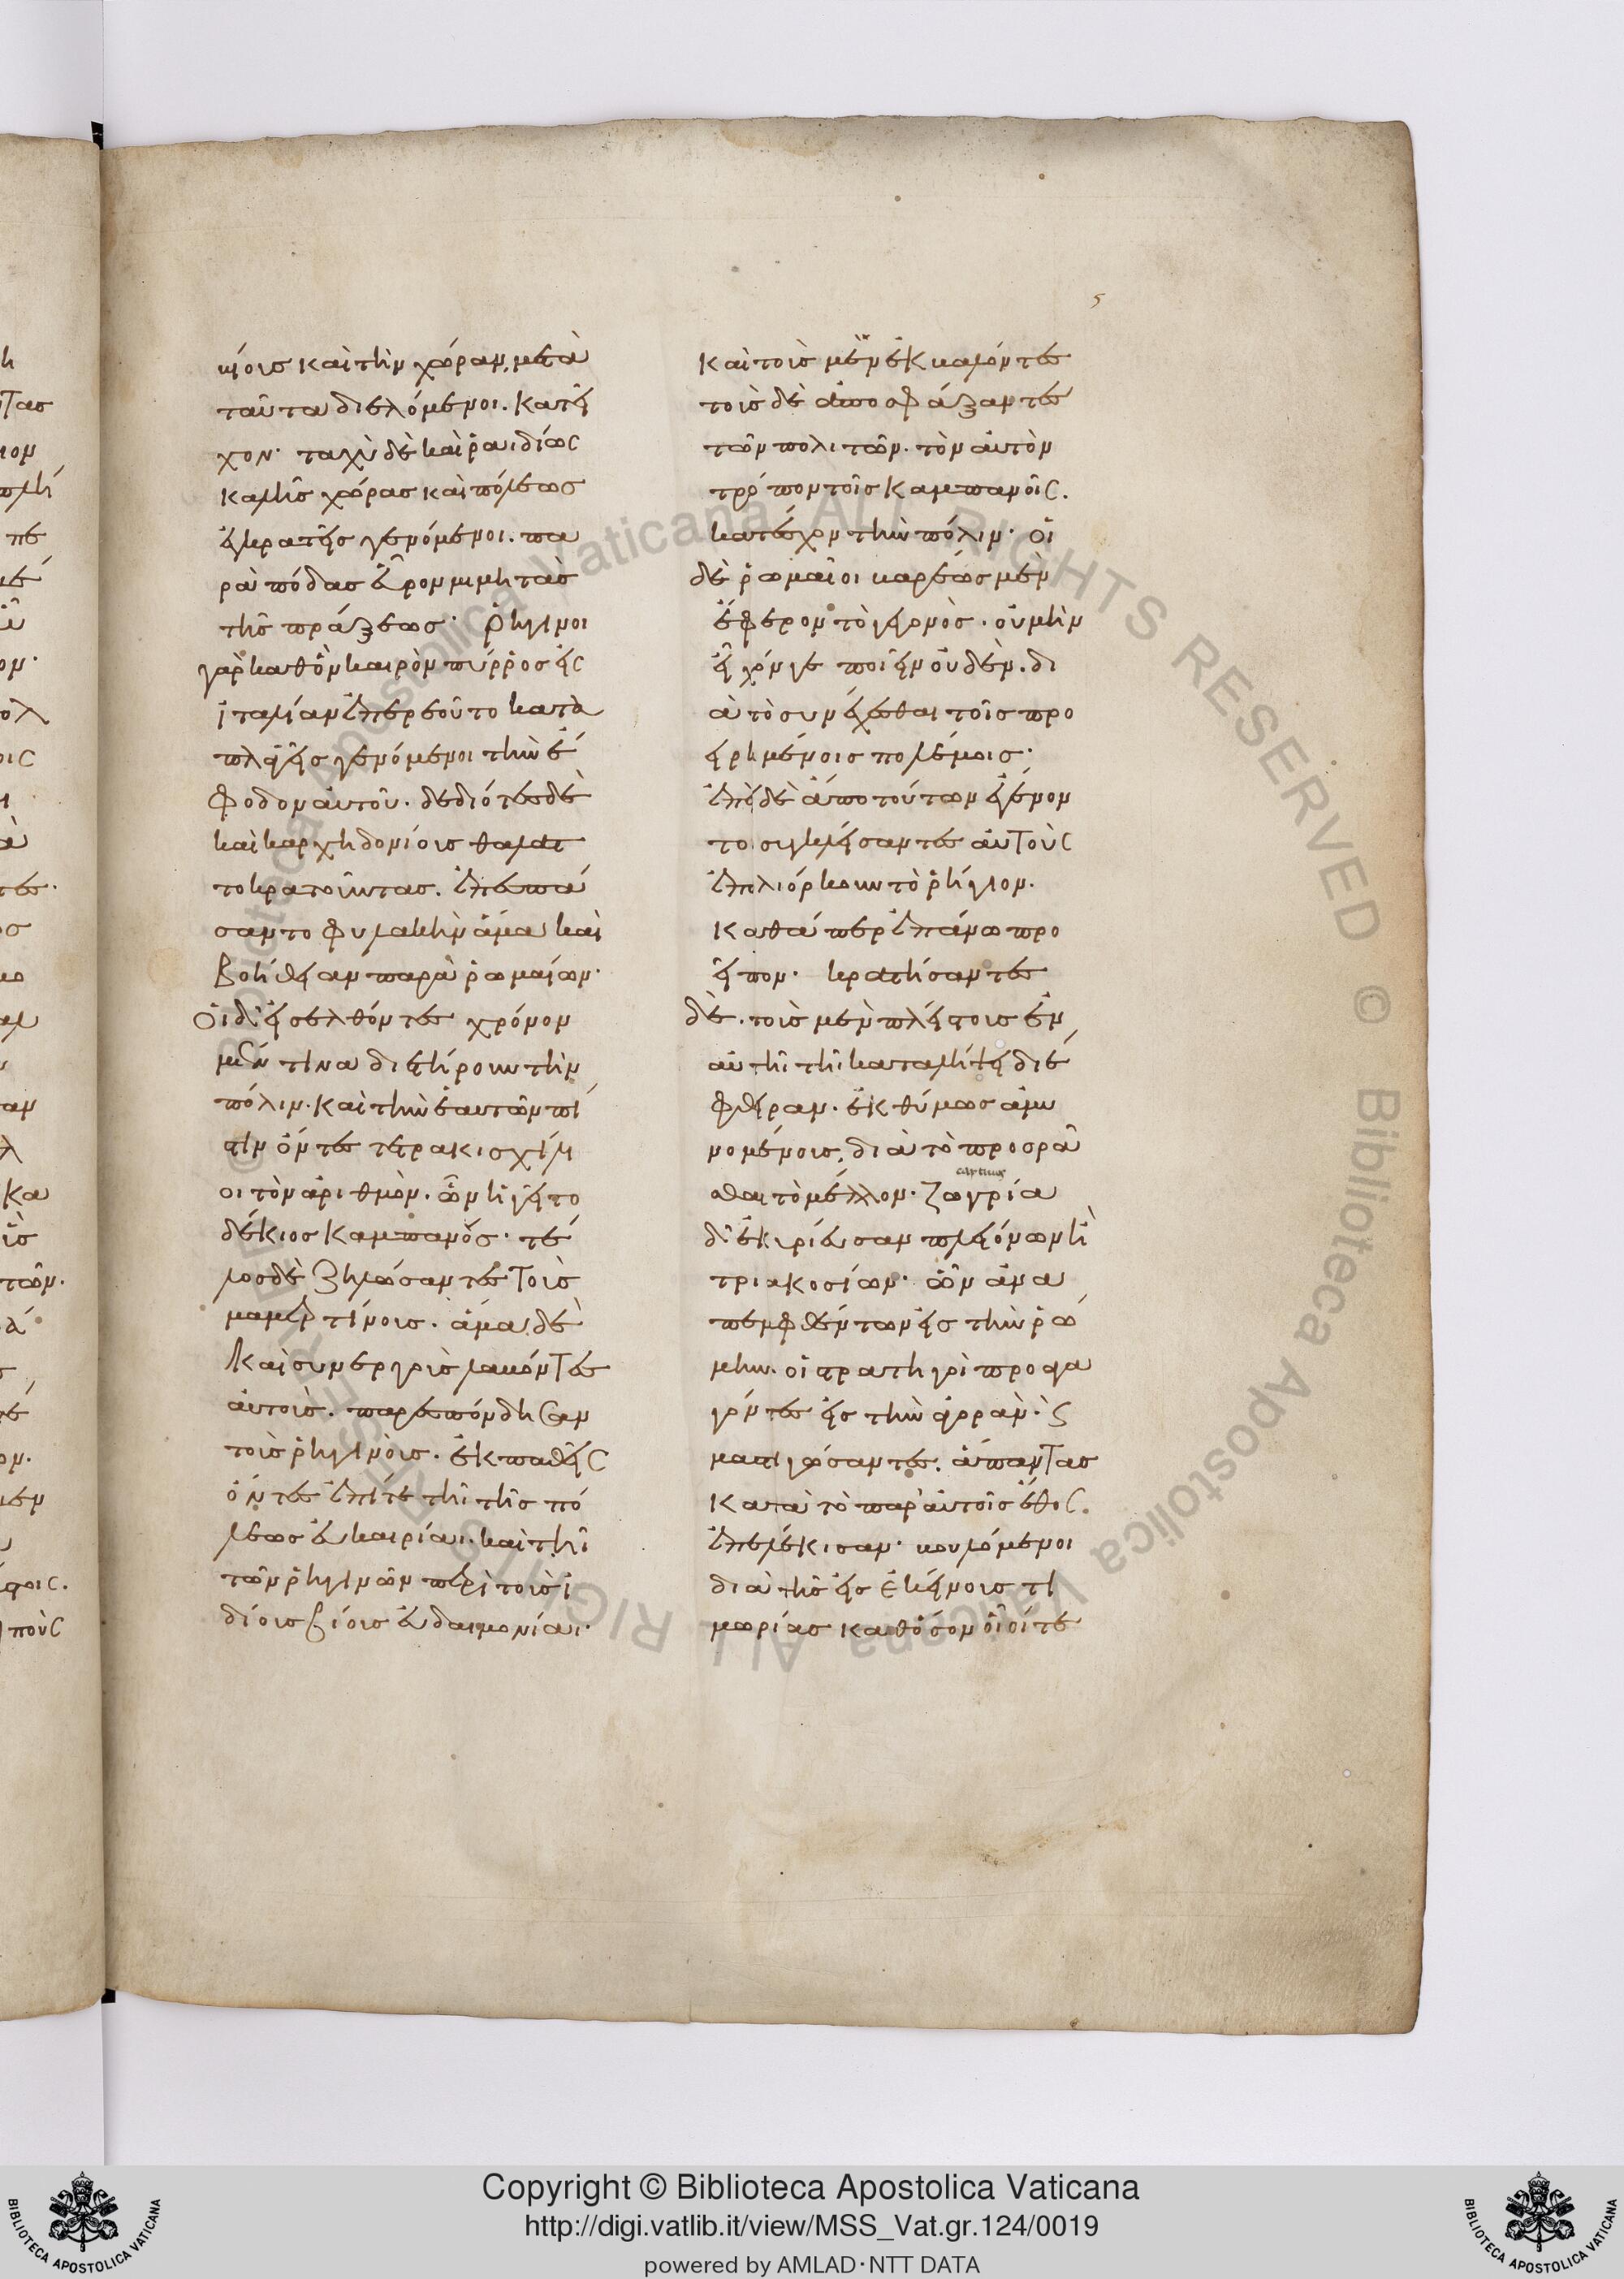 βίους καὶ τὴν χώραν, μετὰ
ταῦτα διελόμενοι. κατεῖ
χον· ταχὺ δὲ καὶ ῥαιδίως
καλῆς χώρας καὶ πόλεως
ἐγκρατεῖς γενόμενοι. πα
ρὰ πόδας εὗρον μιμητὰς
τῆς πράξεως· ῥηγινοι
γὰρ καθ' ὃν καιρὸν πύρρος εἰς
ἰταλίαν ἐπερεοῦτο κατα
πλαγεῖς γενόμενοι τὴν ἔ
φοδον αὐτοῦ. δεδιότες δὲ
καὶ καρχηδονίους θαλατ
τοκρατοῦντας. ἐπεσπά
σαντο φυλακὴν ἅμα καὶ
βοήθειαν παρὰ ῥωμαίων·
οἱ δ' εἰσελθόντες χρόνον
μέν τινα διετήρουν τὴν
πόλιν. καὶ τὴν ἑαυτῶν πί
στιν ὄντες τετρακισχίλι
οι τὸν ἀριθμὸν. ὧν ἡγεῖτο
δέκιος καμπανός· τέ
λος δὲ ζηλώσαντες τοὺς
μαμερτίνους. ἅμα δὲ
καὶ συνεργοὺς λαβόντες
αὐτοὺς. παρεσπόνδησαν
τοὺς ῥηγινους. ἐκπαθεῖς
ὄντες ἐπί τε τῆι τῆς πό
λεως εὐκαιρίαι. καὶ τῆι
τῶν ῥηγινῶν περὶ τοὺς ἰ
δίους βίους εὐδαιμονίαι·
5
καὶ τοὺς μὲν ἐκβαλόντες
τοὺς δὲ ἀποσφάξαντες
τῶν πολιτῶν. τὸν αὐτὸν
τρόπον τοῖς καμπανοῖς.
κατέσχον τὴν πόλιν· οἱ
δὲ ῥωμαῖοι βαρέως μὲν
ἔφερον τὸ γεγονὸς. οὐ μὴν
εἶχόν γε ποιεῖν οὐδὲν. δι
ὰ τὸ συνέχεσθαι τοῖς προ
ειρημένοις πολέμοις·
ἐπεὶ δὲ ἀπὸ τούτων ἐγένον
το συγκλείσαντες αὐτοὺς
ἐπολιόρκουν τὸ ῥήγιον.
καθάπερ ἐπάνω προ
εῖπον· κρατήσαντες
δὲ. τοὺς μὲν πλείστους ἐν
αὐτῆι τῆι καταλήψει διέ
φθειραν. ἐκθύμως ἀμυ
νομένους, διὰ τὸ προορᾶ
σθαι τὸ μέλλον. ζωγρία
δ' ἐκυρίευσαν πλειόνων ἢ
τριακοσίων· ὧν ἀνα
πεμφθέντων εἰς τὴν ῥώ
μην. οἱ στρατηγοὶ προαγα
γόντες εἰς τὴν ἀγορὰν. ϗ
μαστιγώσαντες. ἅπαντας
κατὰ τὸ παρ' αὐτοῖς ἔθος.
ἐπελέκισαν· βουλόμενοι
διὰ τῆς εἰς ἐκείνους τι
μωρίας καθ' ὅσον οἷοί τε
Copyright © Biblioteca Apostolica Vaticana
http://digi.vatlib.it/view/MSS_Vat.gr.124/0019
powered by AMLAD·NTT DATA